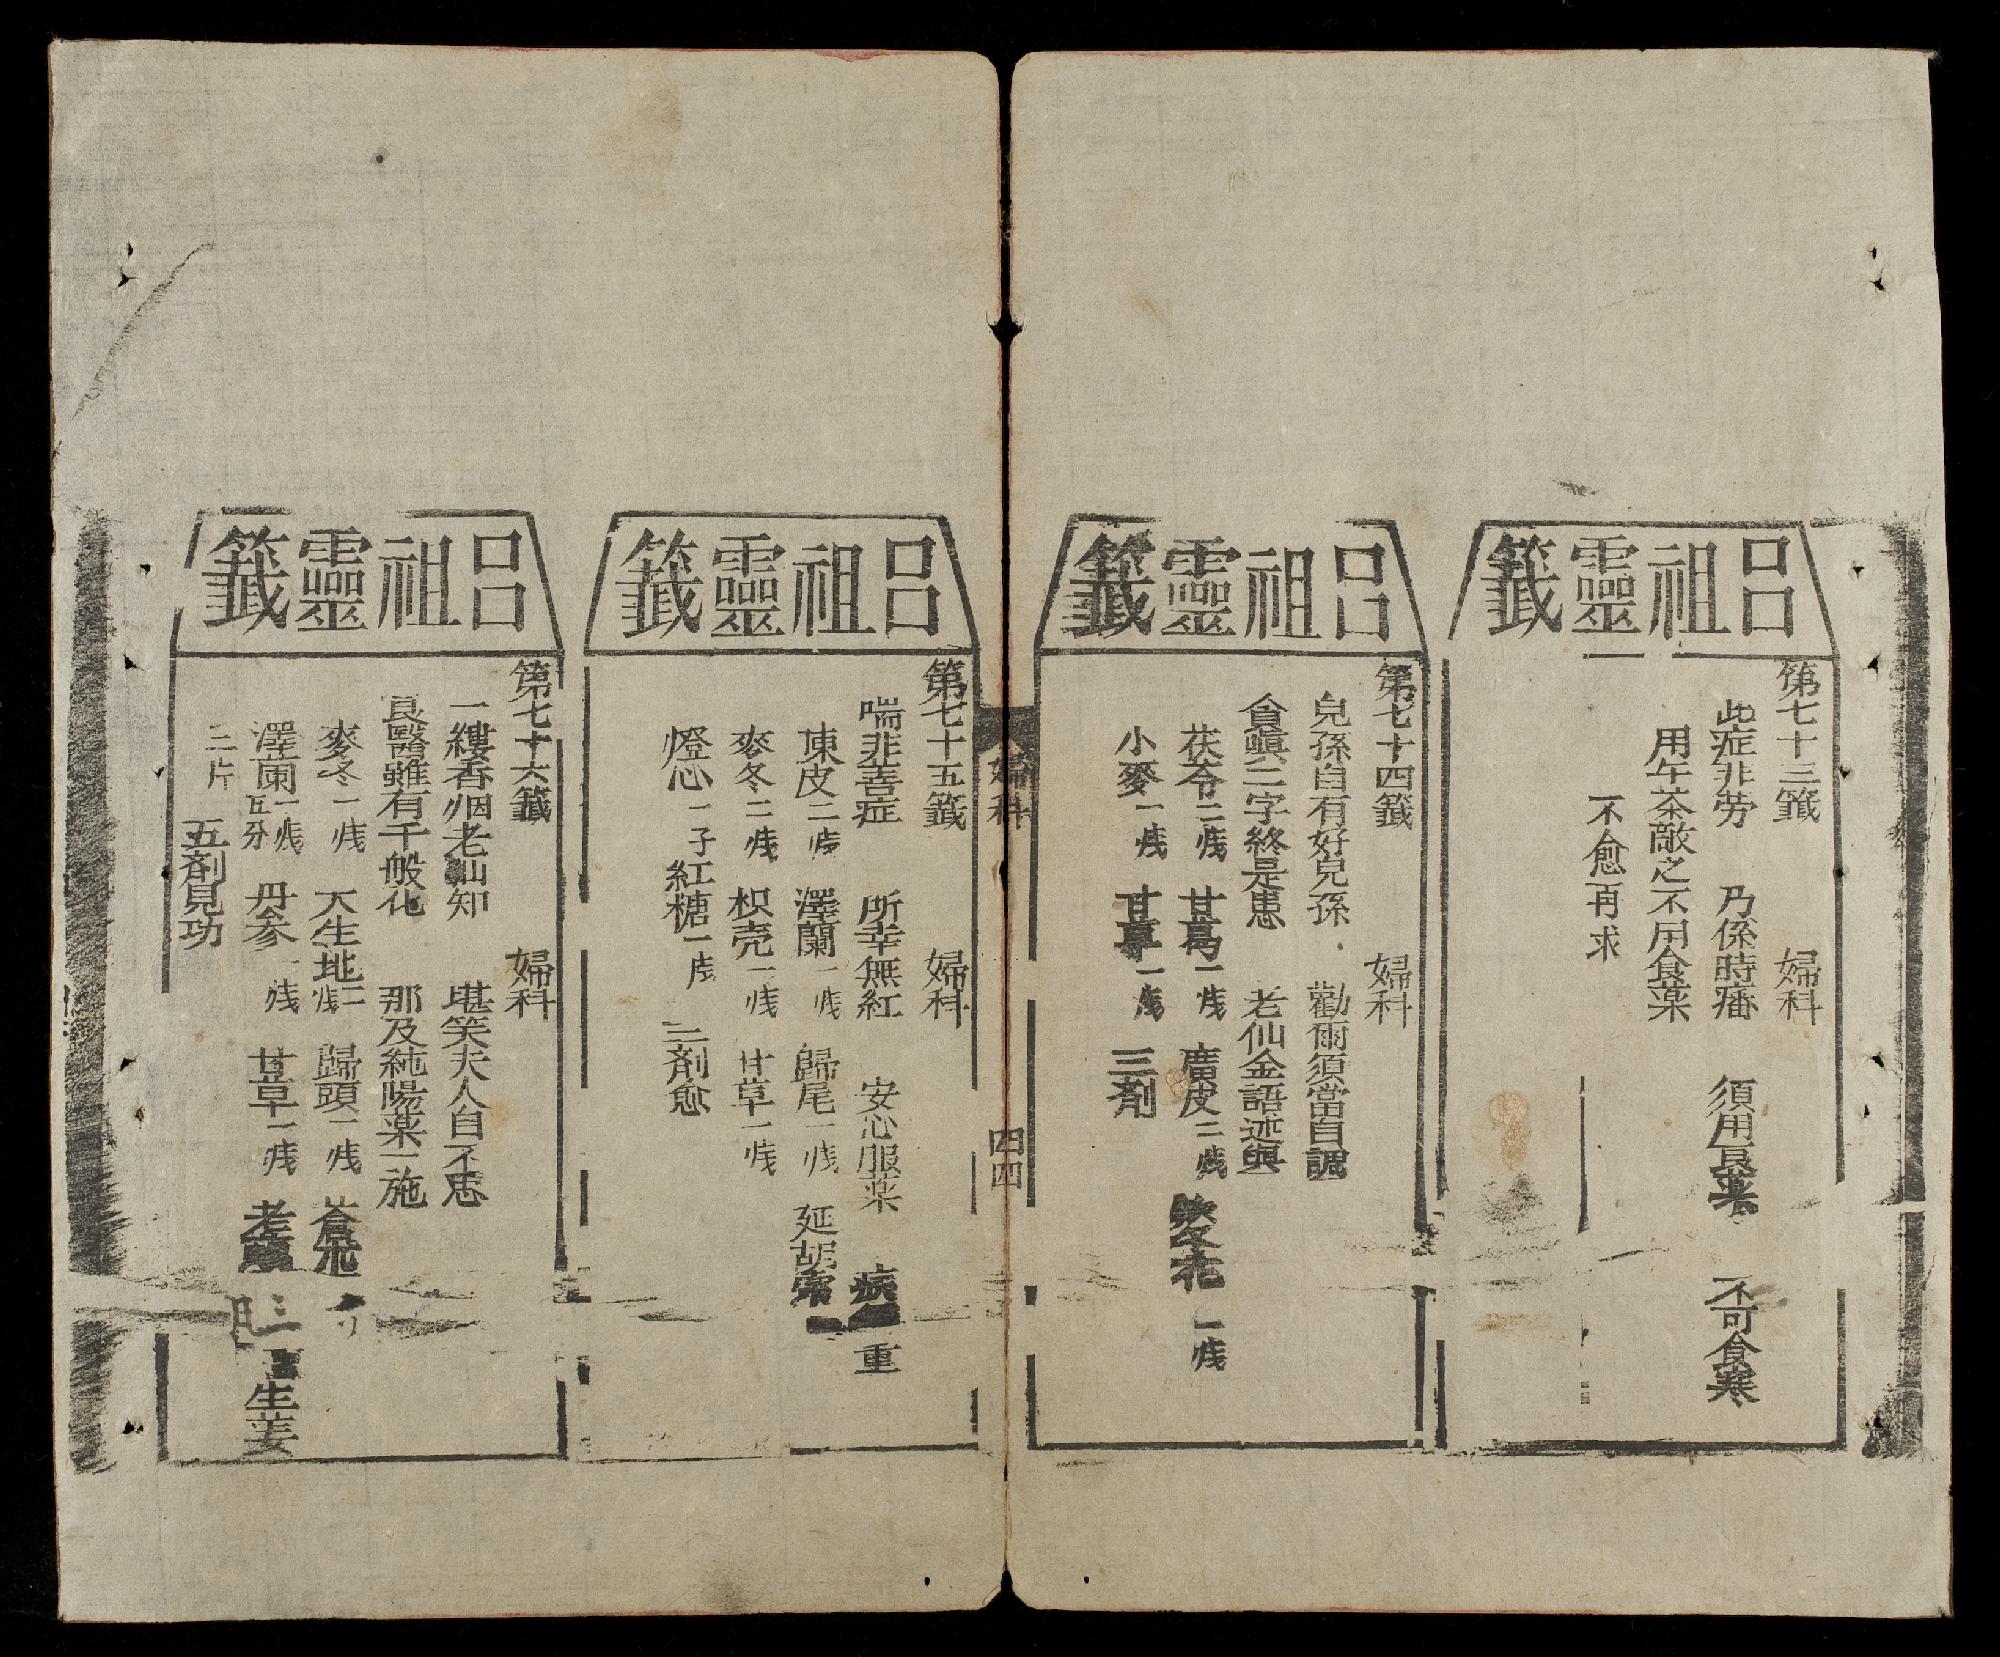 呂祖靈籤
第七十三籤 婦科
此症非劳 乃係時瘙 須用良薬 不可食寒
用午茶敵之不用食薬
不愈再求
呂祖靈籤
第七十四籤 婦科
兒孫自有好兒孫 勸爾須當自調
貪嗔二字終是患 老仙金語述與
茯苓二戔 甘葛一戔 廣皮二戔 花一戔
小麥一戔 甘草一戔 三剤
婦科 四四
呂祖靈籤
第七十五籤 婦科
喘非善症 所幸無紅 安心服薬 病 重
陳皮二戔 澤蘭一戔 歸尾一戔 延胡索
麥冬二戔 枳売一戔 甘草一戔
燈心一子 紅糖一戔 三剤愈
呂祖靈籤
第七十六籤 婦科
一縷香烟老仙知 堪笑夫人自不思
良醫雖有千般化 那及純陽薬一施
麥冬一戔 大生地二戔 歸頭一戔 蒼
澤蘭一戔五分 丹参一戔 甘草一戔 老 三 生姜
三片 五剤見功